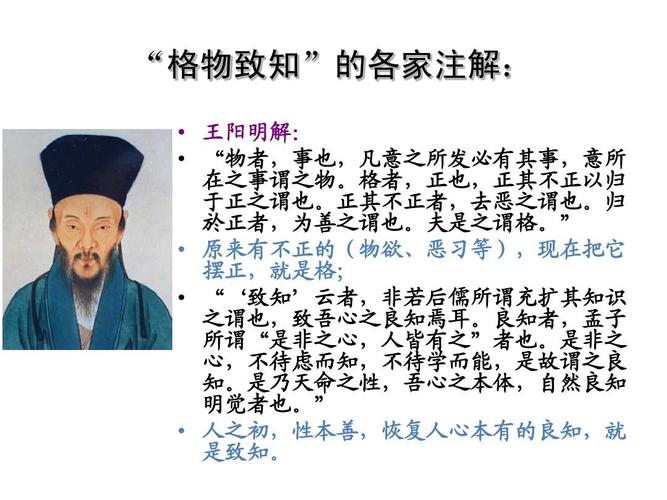 “格物致知”的各家注解：
• 王阳明解：
• “物者，事也，凡意之所发必有其事，意所
在之事谓之物。格者，正也，正其不正以归
于正之谓也。正其不正者，去恶之谓也。归
於正者，为善之谓也。夫是之谓格。”
• 原来有不正的（物欲、恶习等），现在把它
摆正，就是格；
• “‘致知’云者，非若后儒所谓充扩其知识
之谓也，致吾心之良知焉耳。良知者，孟子
所谓“是非之心，人皆有之”者也。是非之
心，不待虑而知，不待学而能，是故谓之良
知。是乃天命之性，吾心之本体，自然良知
明觉者也。”
• 人之初，性本善，恢复人心本有的良知，就
是致知。